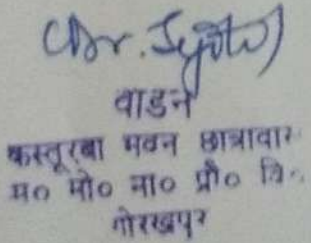 (Dr. Jyoti)
वार्डन
कस्तूरबा भवन छात्रावास
म० मो० मा० प्रौ० वि०
गोरखपुर